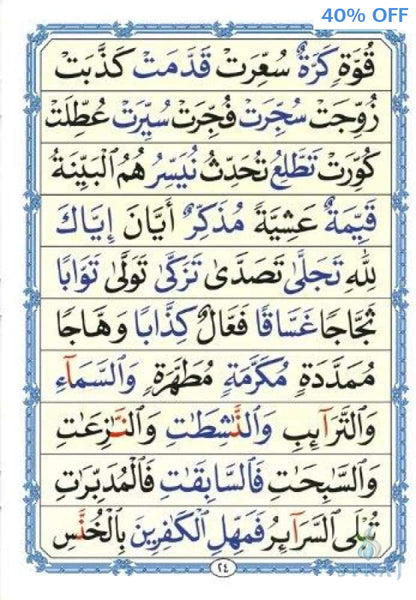 40% OFF
قُوَّةٍ كَرَّةٌ سُعِّرَتْ قَدَّمَتْ كَذَّبَتْ
زُوِّجَتْ سُجِّرَتْ فُجِّرَتْ سُيِّرَتْ عُطِّلَتْ
كُوِّرَتْ تَطَّلِعُ تُحَدِّثُ نُيَسِّرُ هُمُ الْبَيِّنَةُ
قَيِّمَةٌ عَشِيَّةً مُذَكِّرٌ أَيَّانَ إِيَّاكَ
لِلّٰهِ تَجَلّٰى تَصَدّٰى تَزَكّٰى تَوَلّٰى تَوَّابًا
ثَجَّاجًا غَسَّاقًا فَعَّالٌ كِذَّابًا وَهَّاجًا
مُمَدَّدَةٍ مُكَرَّمَةٍ مُطَهَّرَةٍ وَالسَّمَآءِ
وَالتَّرَآئِبِ وَالنّٰشِطٰتِ وَالنّٰزِعٰتِ
وَالسّٰبِحٰتِ فَالسّٰبِقٰتِ فَالْمُدَبِّرٰتِ
تُبْلَى السَّرَآئِرُ فَمَهِّلِ الْكٰفِرِينَ بِالْخُنَّسِ
٢٤